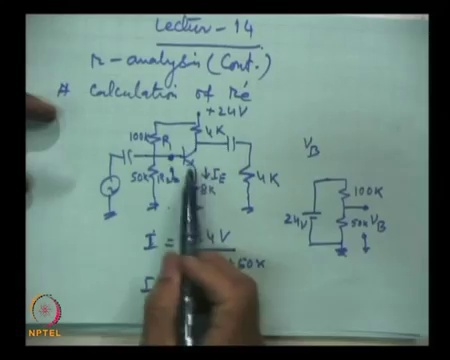 Lectur - 14
r - analysis (Cont.)
# Calculation of Ré
+24V
100K R1
4K
VB
↓ IE
50K R2
8K
4K
100K
24V
50K VB
I = 4V
50K
I
NPTEL